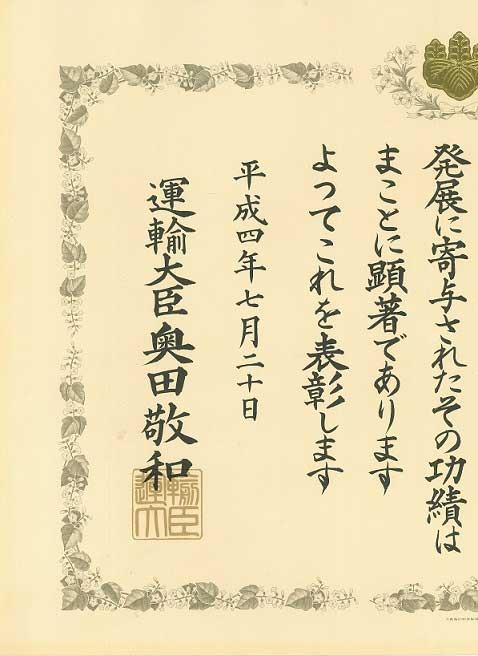 発展に寄与されたその功績は
まことに顕著であります
よってこれを表彰します
平成四年七月二十日
運輸大臣 奥田敬和
運輸大臣